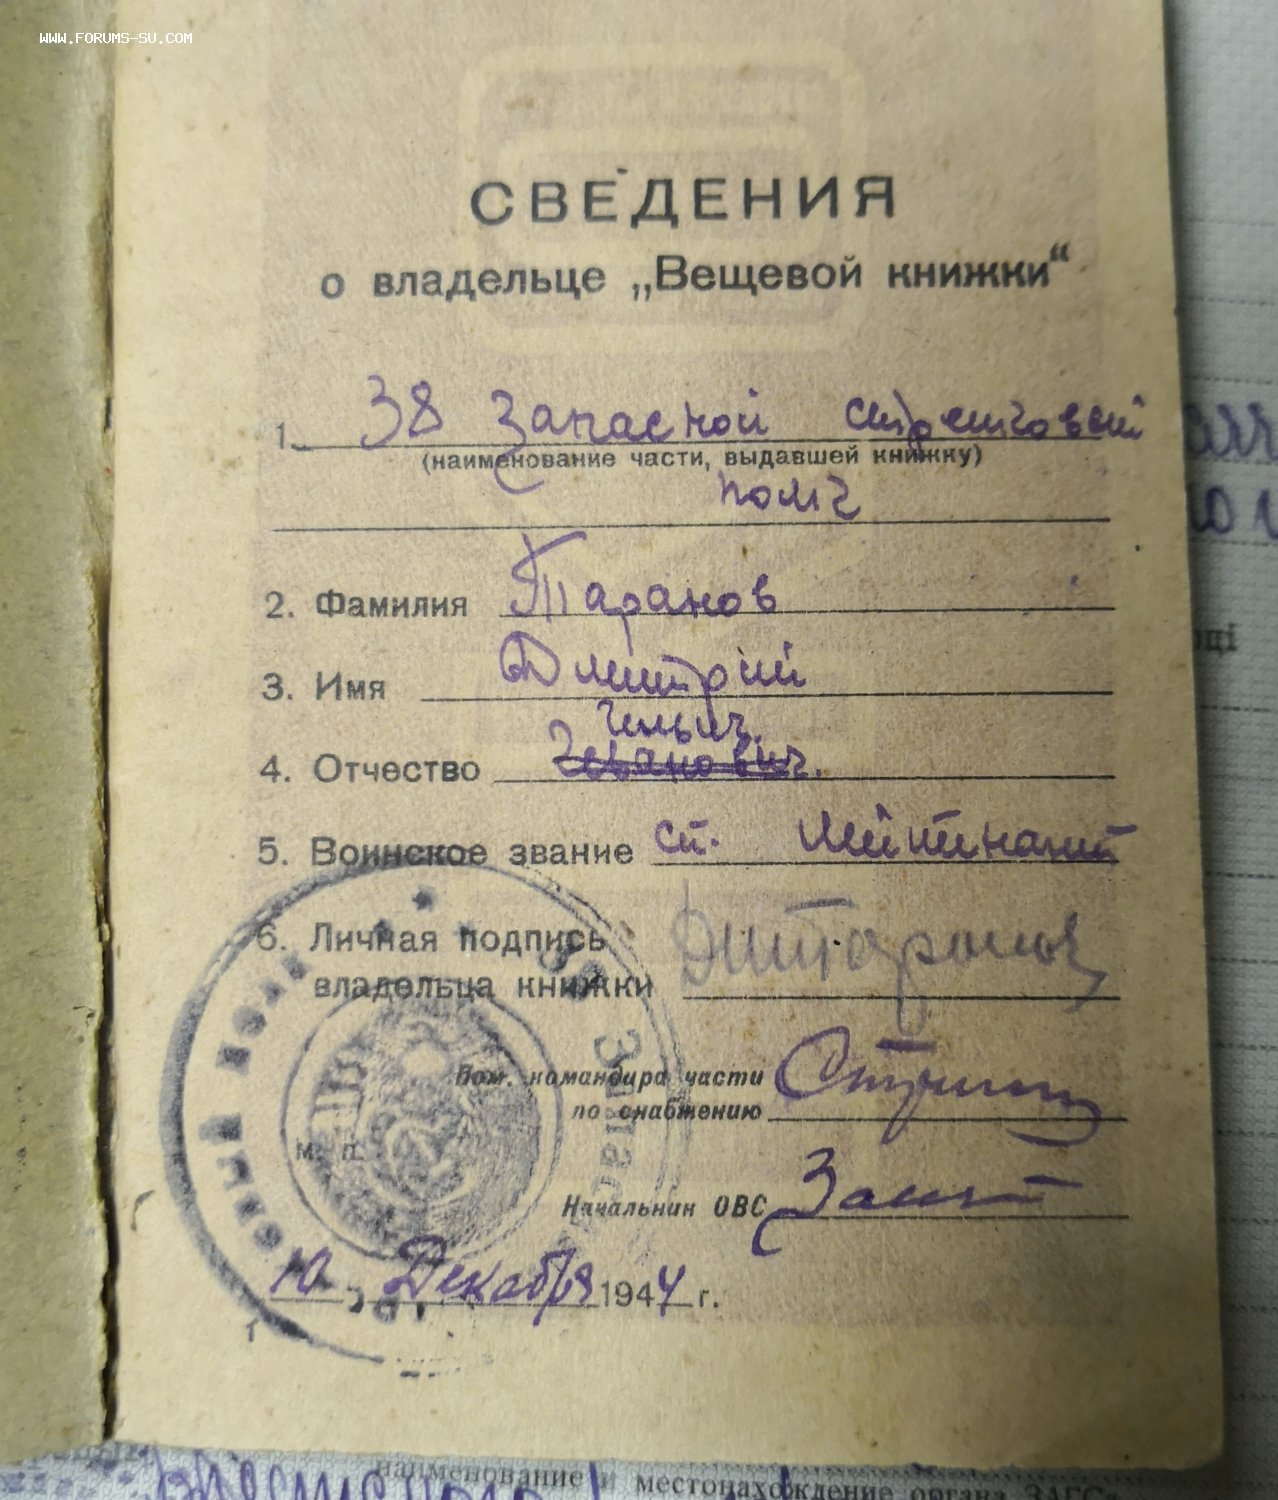 WWW.FORUMS-SU.COM
СВЕДЕНИЯ
о владельце „Вещевой книжки“
1. 38 Запасной стрелковый
(наименование части, выдавшей книжку)
полк
2. Фамилия Таранов
3. Имя Дмитрий
Ильич.
4. Отчество Иванович.
5. Воинское звание ст. лейтенант
6. Личная подпись
владельца книжки
Пом. командира части
по снабжению
м. п.
Начальник ОВС
10 Декабря 1944 г.
1
наименование и местонахождение органа ЗАГС